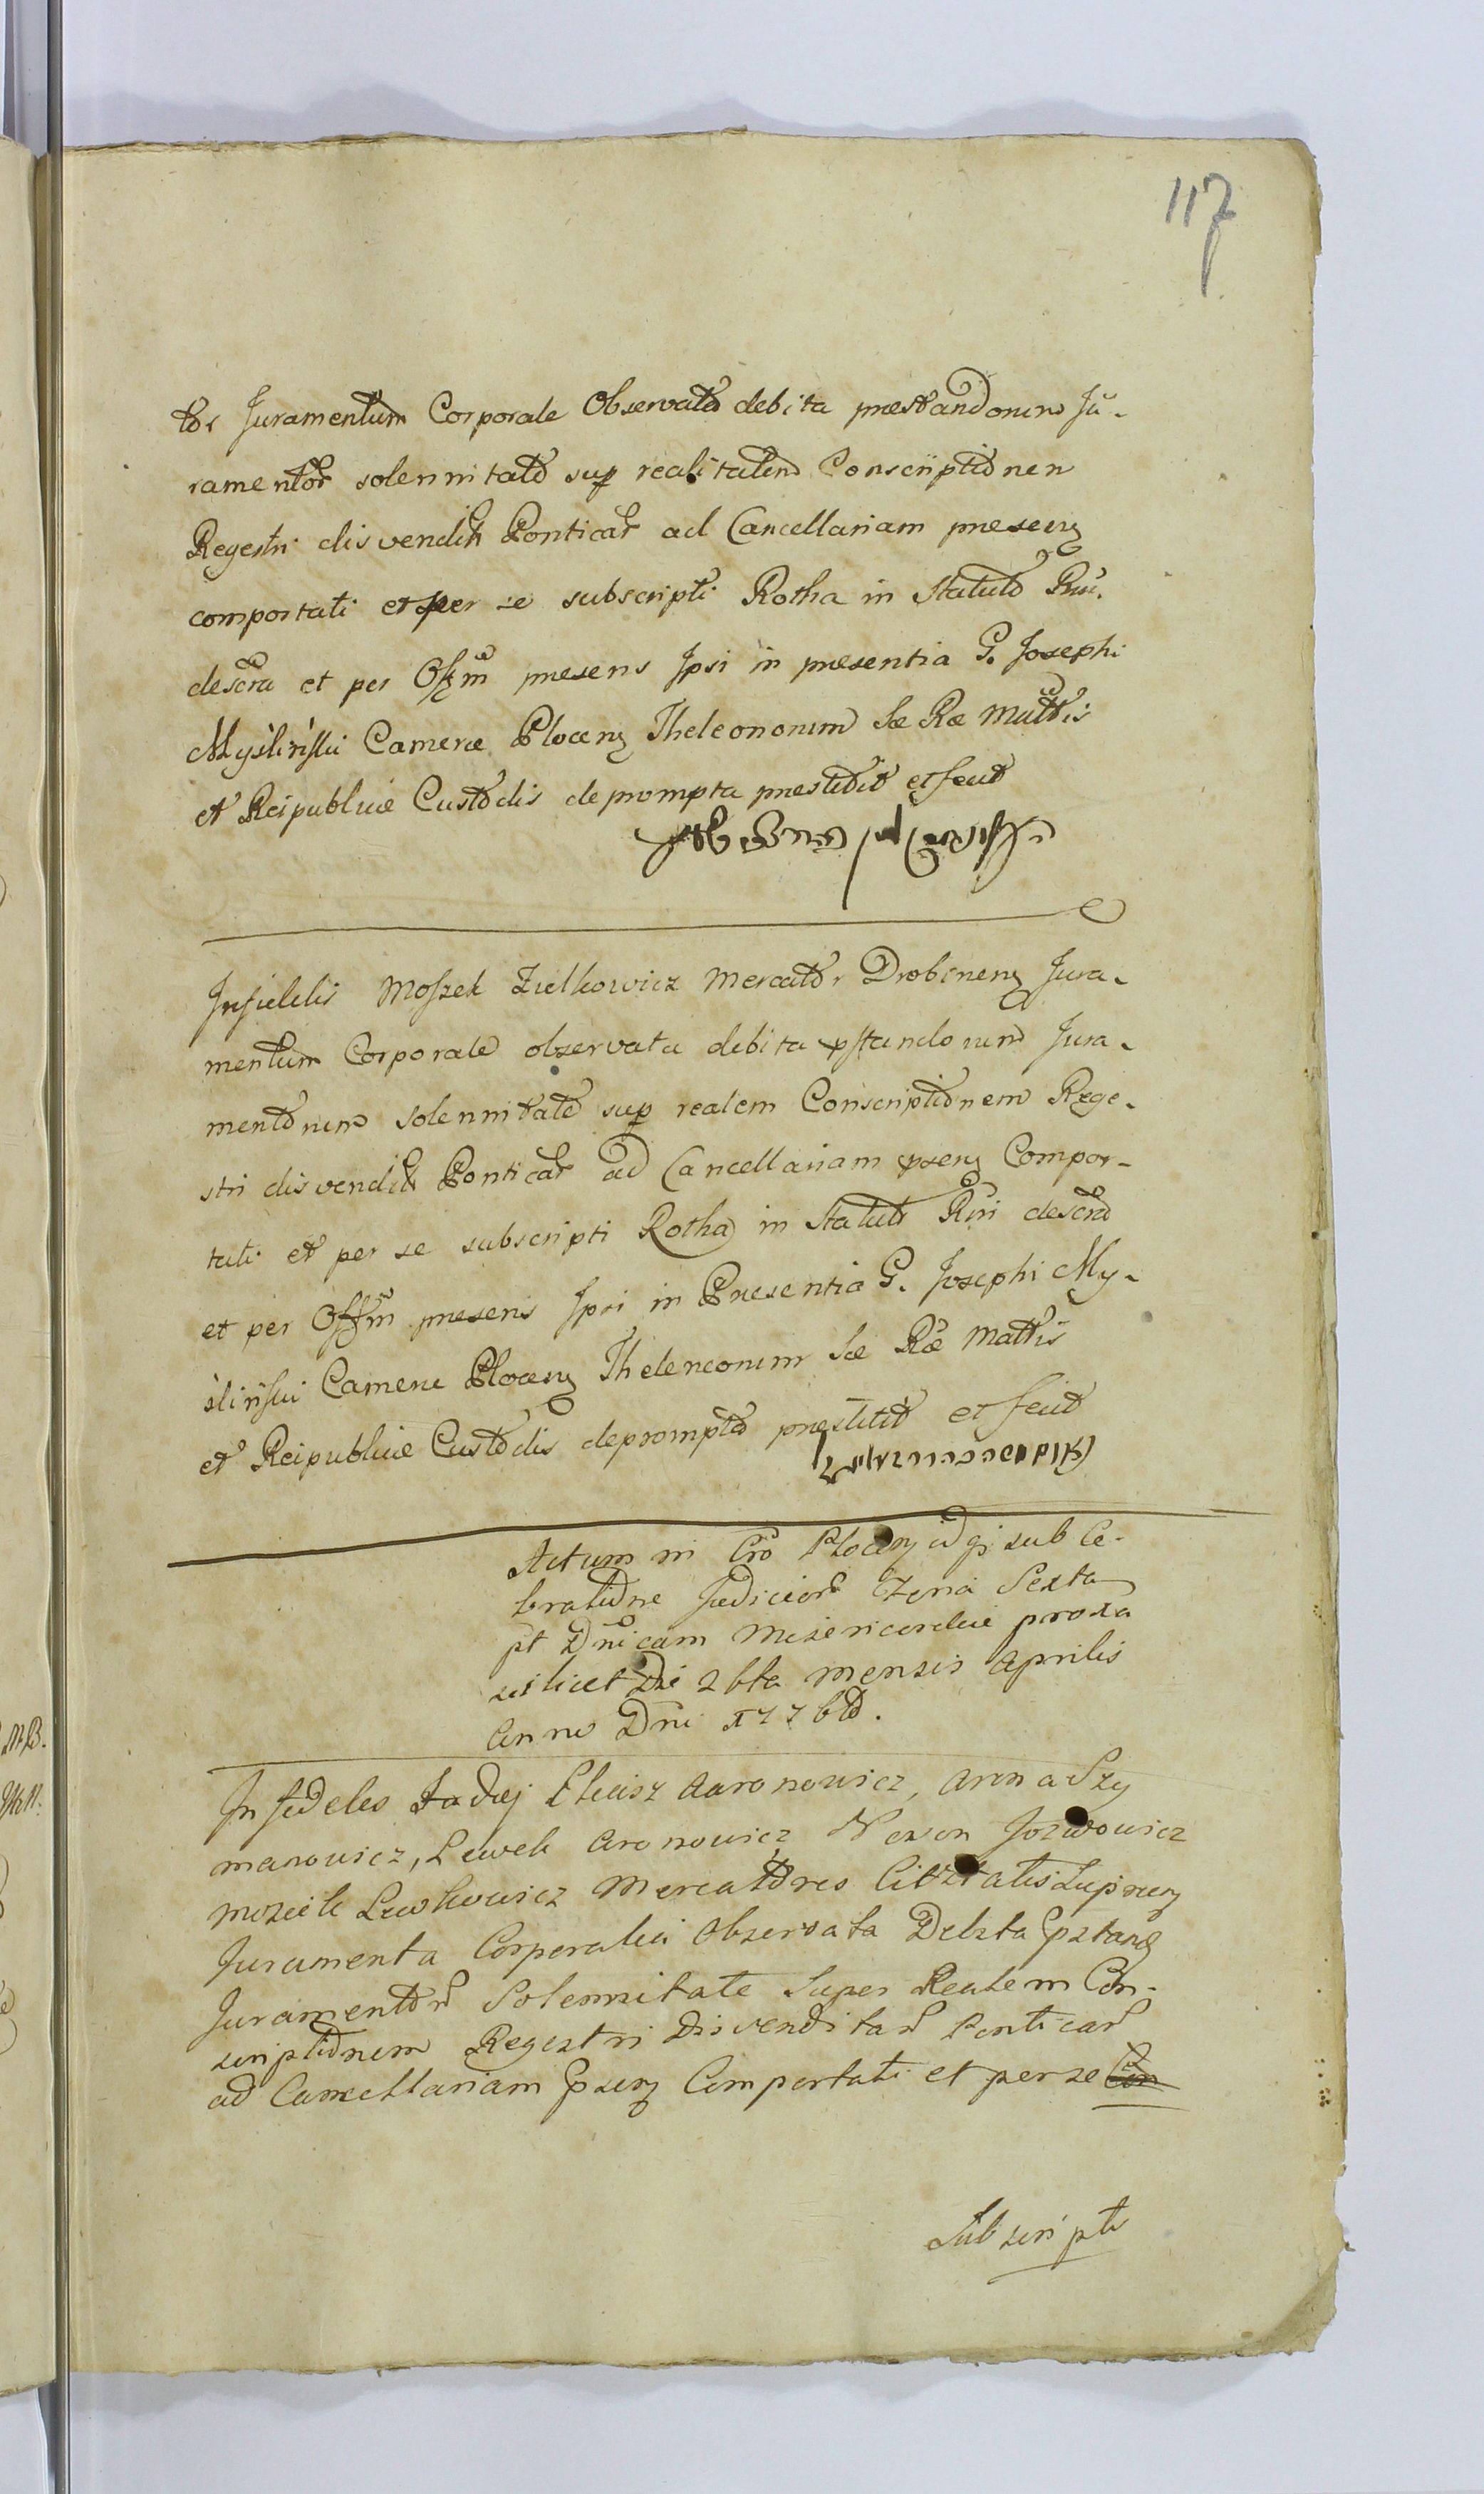 117
tor Juramentum Corporale Observata debita prestandorum Ju-
ramentor solennitate sup realitatem Conscriptionem
Regestri disvendit Ponticar ad Cancellariam presen
comportati et per se subscripti Rotha in Statuto Rni.
descra et per Offm presens Ipsi in presentia G. Josephi
Myśliński Camerae Plocen Theleonorum Sae Rae Mattis
et Reipublicae Custodis deprompta prestitit et fecit
Infidelis Moszek Zielkowicz Mercator Drobinen Jura-
mentum Corporale observata debita pstandorum Jura-
mentorum solennitate sup realem Conscriptionem Rege-
stri disvendit Ponticar ad Cancellariam psen Compor-
tati et per se subscripti Rotha in Statuto Rni descra
et per Offm presens Ipsi in Presentia G. Josephi My-
śliński Camerae Plocen Theleneonum Sae Rae Mattis
et Reipublicae Custodis deprompta prestitit et fecit
Actum in Cro Plocen id q sub Ce-
bratione Judicior Feria Sexta
pt Dnicam Misericordiae proxa
scilicet Die 26ta mensis Aprilis
Anno Dni 1776to.
Infideles Judei Eliasz Aaronowicz, Aron a Szy
manowicz, Lewek Aronowicz Jozwowicz
Moziek Lewkowicz Mercatores Citztatis
Juramenta Corporalia Observata Debita Pstand
Juramentor Solennitate Super Realem Con-
scriptionem Regestri Disvenditar Ponticar
ad Cancellariam Psen Comportati et per se Con
Subscripti